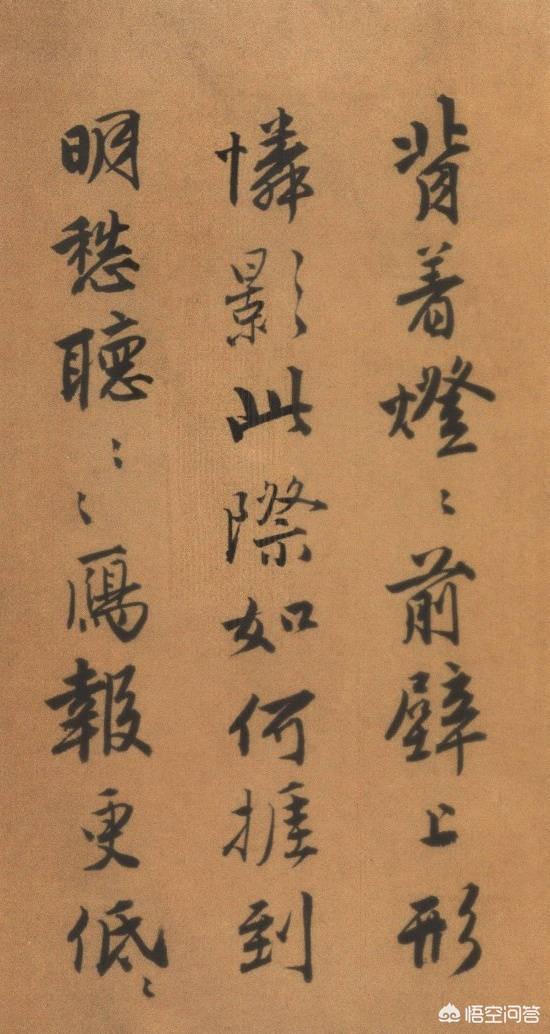 背着燈〻前壁上形
憐影此際如何捱到
明愁聽〻〻鴈報更低〻
悟空问答